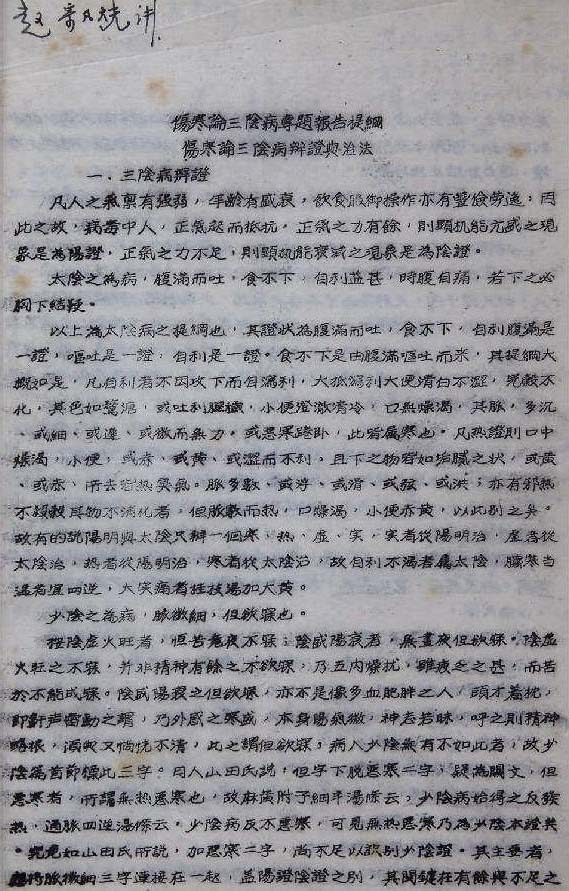 赵 讲
傷寒論三陰病專題報告提綱
傷寒論三陰病辯證與治法
一、三陰病辯證
凡人之氣禀有强弱，年齡有盛衰，飲食服御操作亦有豐儉勞逸；因
此之故，病毒中人，正氣起而抵抗，正氣之力有餘，則顯机能亢盛之現
象是為陽證，正氣之力不足，則顯机能衰減之現象是為陰證。
太陰之為病，腹滿而吐，食不下，自利益甚，時腹自痛，若下之必
胸下結鞕。
以上為太陰病之提綱也，其證狀為腹滿而吐，食不下，自利腹滿是
一證，嘔吐是一證，自利是一證。食不下是由腹滿嘔吐而來，其提綱大
概如是，凡自利者不因攻下而自瀉利，大抵瀉利大便清白不澀，完穀不
化，其色如鶩溏，或吐利腥穢，小便澄澈清冷，口無燥渴，其脉，多沉
、或細、或遲、或微而無力。或惡寒踡卧，此皆屬寒也。凡熱證則口中
燥渴，小便，或赤、或黄、或澀而不利，且下之物皆如垢膩之狀，或黄
、或赤，所去皆熱臭氣。脉多數、或浮、或滑、或弦、或洪；亦有邪熱
不殺穀其物不消化者，但脉數而熱，口燥渴，小便赤黄，以此别之矣。
故有的說陽明與太陰只辨一個寒、熱、虚、实，实者從陽明治，虚者從
太陰治，熱者從陽明治，寒者從太陰治，故自利不渴者属太陰，臟寒当
温者宜四逆，大实痛者桂枝湯加大黄。
少陰之為病，脉微細，但欲寐也。
按陰虚火旺者，恒苦竟夜不寐；陰盛陽衰者，無晝夜但欲寐。陰虚
火旺之不寐，并非精神有餘之不欲寐，乃五内燥扰，雖疲乏之甚，而苦
於不能成寐。陰盛陽衰之但欲寐，亦不是像多血肥胖之人，頭才着枕，
即鼾声雷動之謂，乃外感之寒盛，本身陽氣微，神志若昧，呼之則精神
略振，須臾又恍恍不清，此之謂但欲寐；病人少陰無有不如此者，故少
陰篇首節標此三字。日人山田氏說，但字下脱惡寒二字；疑為闕文，但
惡寒者，所謂無熱惡寒也，故麻黄附子細辛湯條云；少陰病始得之反發
熱，通脉四逆湯條云，少陰病反不惡寒，可見無熱惡寒乃為少陰本證矣
。究竟如山田氏所說，加惡寒二字，尚不足以識别少陰證。其主要者，
脉微細三字連接在一起，蓋陽證陰證之别，其関鍵在有餘與不足之